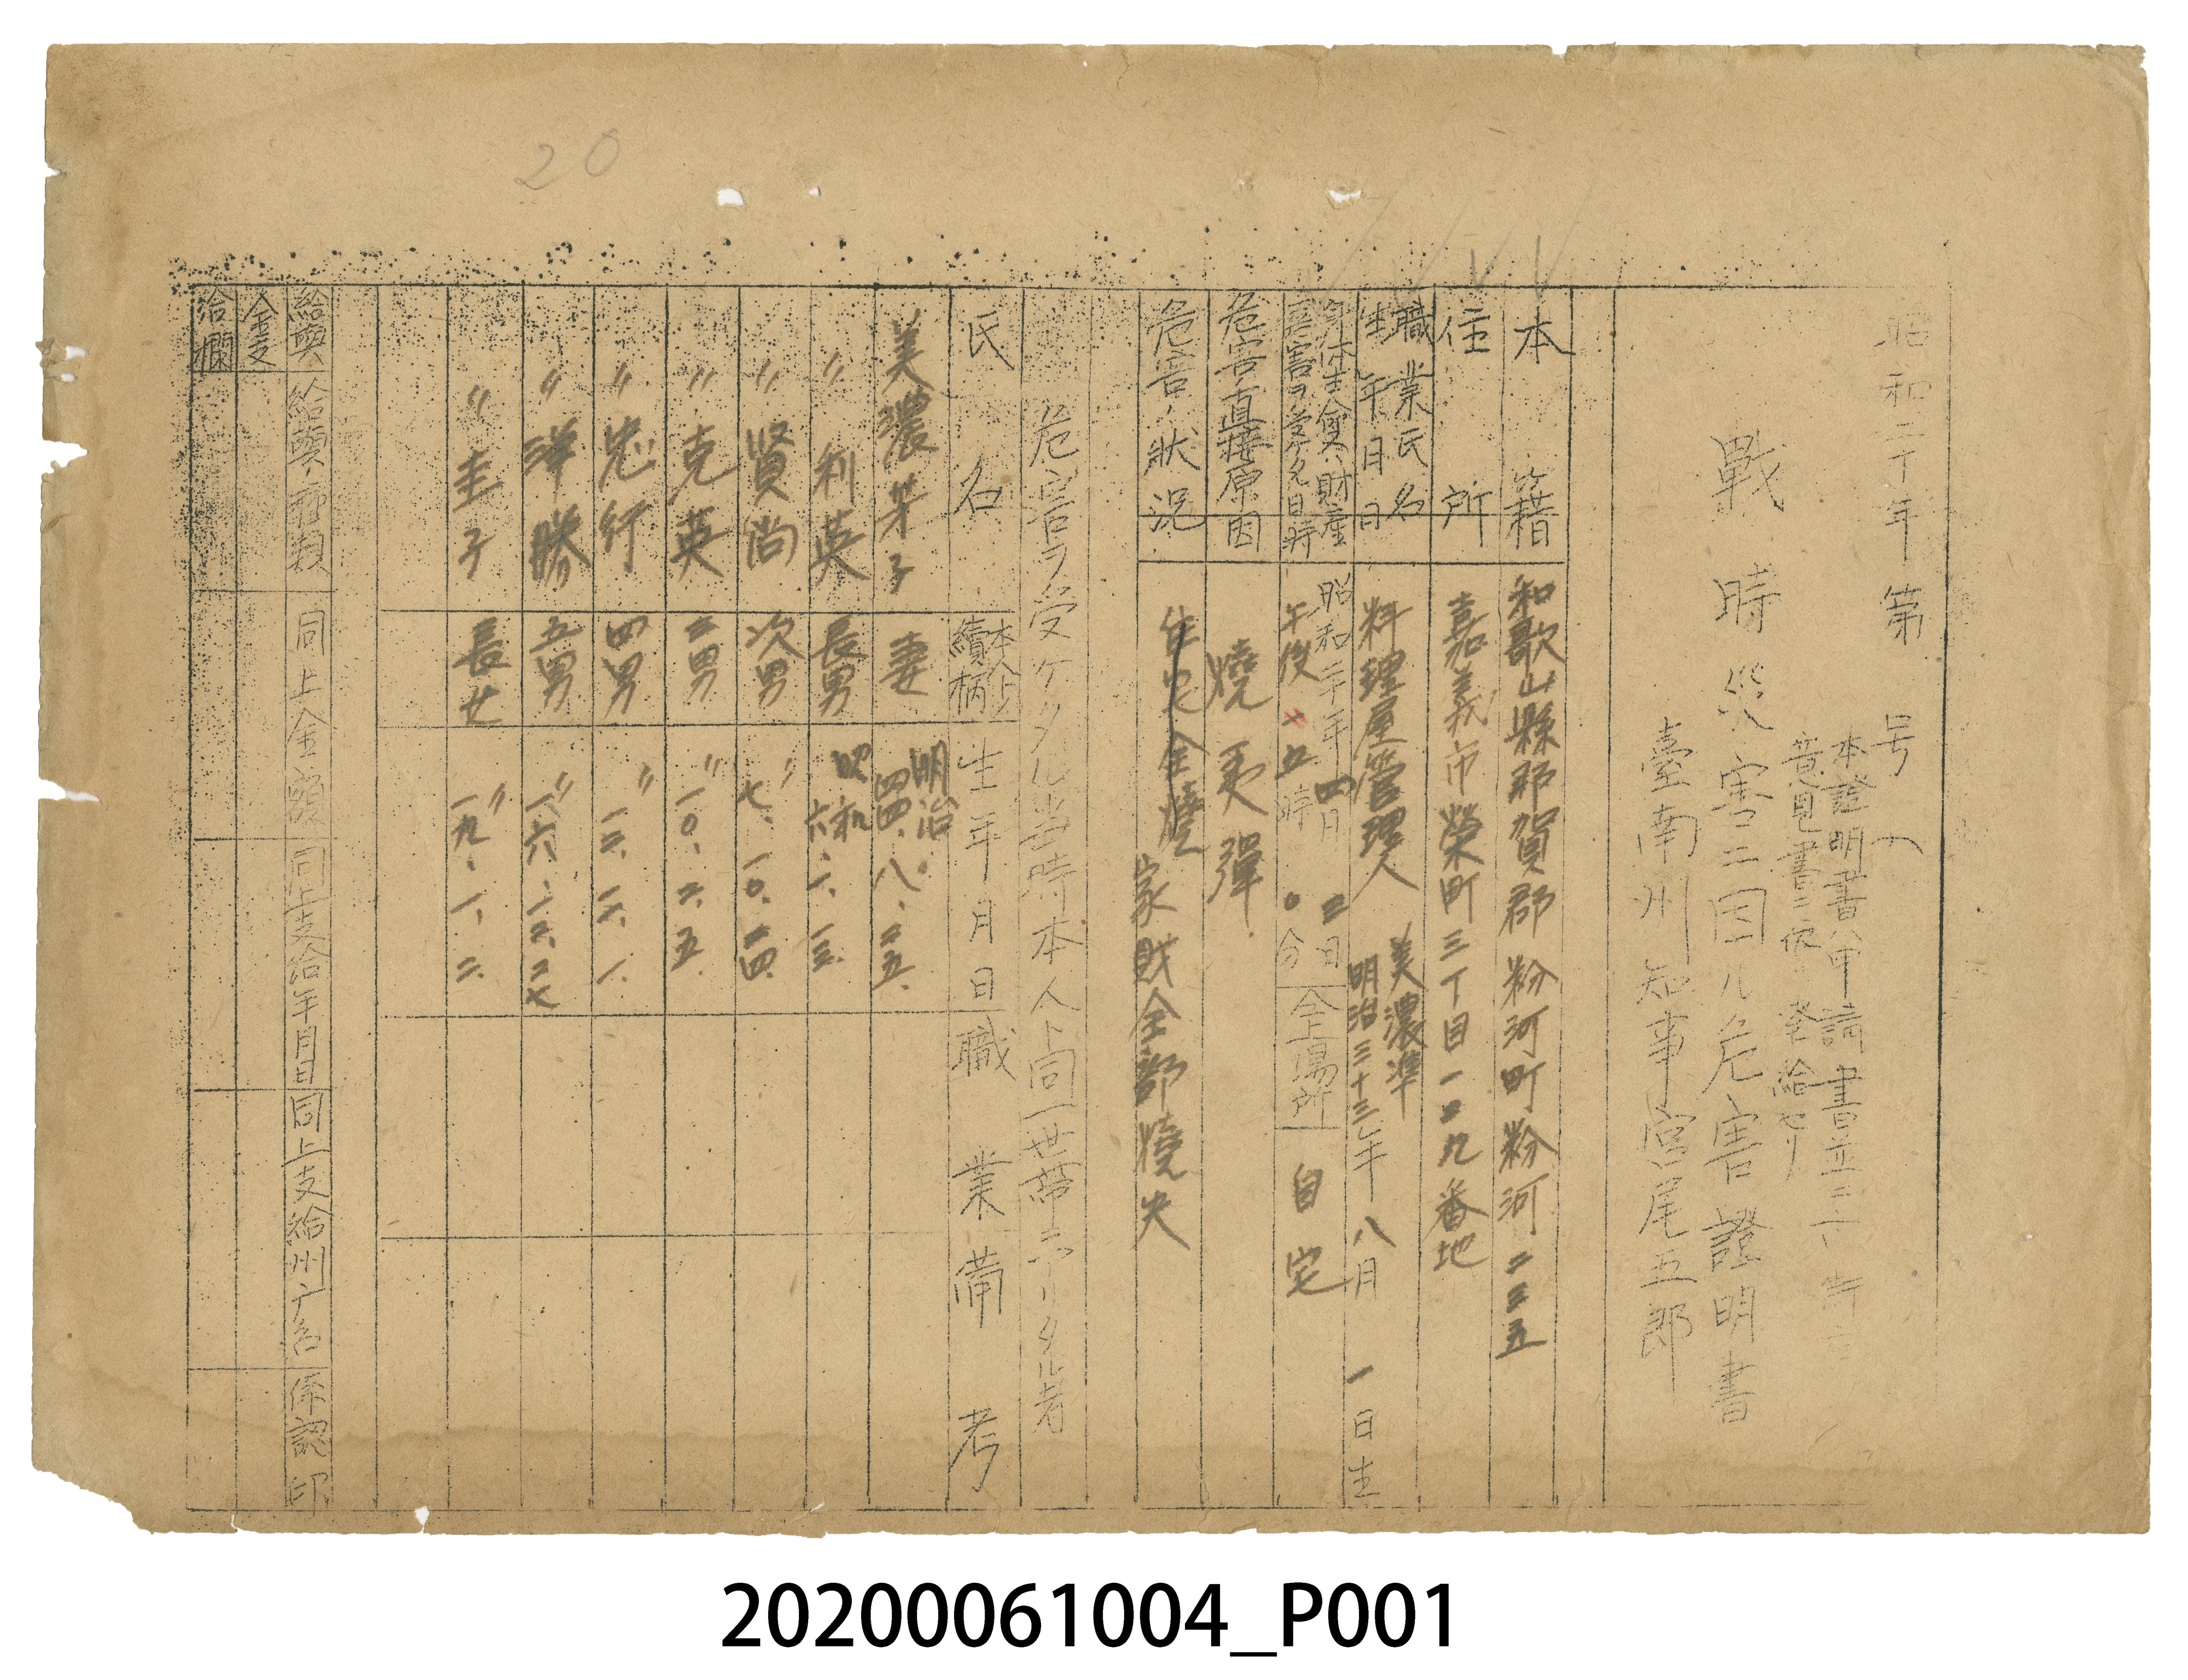 20
昭和二十年第 号
本證明書ハ申請書並ニ
意見書ニ依リ發給セリ
戰時災害ニ因ル危害證明書
臺南州知事宮尾五郎
本籍 和歌山縣那賀郡粉河町粉河二三五
住所 嘉義市榮町三丁目一〇九番地
職業氏名 料理屋管理人 美濃準
生年月日 明治三十三年八月一日生
身体生命又ハ財産
危害ヲ受ケタ日時 昭和二十年四月三日 午後五時〇分 仝上場所 自宅
危害ノ直接原因 燒夷彈
危害ノ狀況 住宅全燒 家財全部燒失
危害ヲ受ケタル当時本人ト同一世帶ニアリタル者
氏名 本人トノ續柄 生年月日 職業 備考
美濃 子 妻 明治四四、八、二五、
〃 利英 長男 昭和六、一、三、
〃 賢尚 次男 〃七、一〇、一四、
〃 克英 三男 〃一〇、二、五、
〃 忠行 四男 〃
〃 洋勝 五男 〃一六、一二、二七
〃 圭子 長女 〃一九、一、二、
給與 給與種類 同上金額 同上支給年月日 同上支給州廳名 係認印
金支
給欄
20200061004_P001